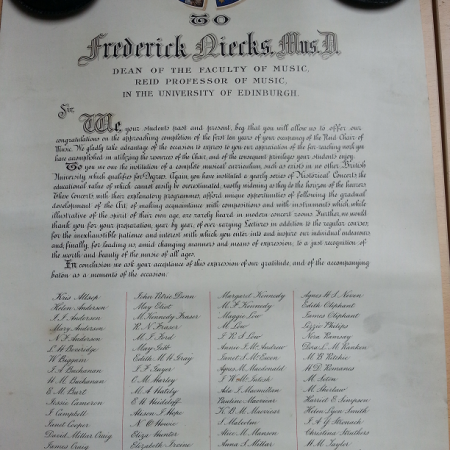 TO
Frederick Niecks, Mus.D.
DEAN OF THE FACULTY OF MUSIC,
REID PROFESSOR OF MUSIC,
IN THE UNIVERSITY OF EDINBURGH.
Sir
We, your students past and present, beg that you will allow us to offer our
congratulations on the approaching completion of the first ten years of your occupancy of the Reid Chair of
Music. We gladly take advantage of the occasion to express to you our appreciation of the far-reaching work you
have accomplished in utilizing the resources of the Chair, and of the consequent privileges your students enjoy.
To you we owe the institution of a complete musical curriculum, such as exists in no other British
University which qualifies for Degrees. Again, you have instituted a yearly series of Historical Concerts the
educational value of which cannot easily be overestimated, vastly widening as they do the horizon of the hearers.
These Concerts with their explanatory programmes, afford unique opportunities of following the gradual
development of the Art, of making acquaintance with compositions and with instruments which while
illustrative of the spirit of their own age, are rarely heard in modern concert rooms. Further, we would
thank you for your preparation, year by year, of ever varying Lectures in addition to the regular courses;
for the inexhaustible patience and interest with which you enter into and inspire our individual endeavours
and, finally, for leading us, amid changing manners and means of expression, to a just recognition of
the worth and beauty of the music of all ages.
In conclusion we ask your acceptance of this expression of our gratitude, and of the accompanying
baton as a memento of the occasion.
Kris Allsop
Helen Anderson
J. J. Anderson
Mary Anderson
N. F. Anderson
L. W. Beveridge
W. Biggam
J. A. Buchanan
H. M. Buchanan
E. M. Burt
Jessie Cameron
J. Campbell
Janet Cooper
David Millar Craig
James Craig
John Petrie Dunn
May Eliot
M. Kennedy Fraser
R. N. Fraser
M. J. Ford
May Gibb
Edith M. H. Gray
J. F. Guyer
O. M. Harley
M. A. Hartly
Alison J. Hope
N. O. Howie
Eliza Hunter
Elizabeth Irvine
Margaret Kennedy
M. F. Kennedy
Maggie Low
M. Low
Janet S. McEwen
Agnes M. Macdonald
Ada S. Macmillan
Pauline Macnair
K. B. M. Macvicar
J. Malcolm
Alice M. Manson
Anna S. Millar
Agnes H. S. Niven
Edith Oliphant
James Oliphant
Lizzie Philips
Nora Ramsay
Rose L. M. Rankin
M. B. Ritchie
W. D. Romanis
M. Seton
M. Sherlaw
Harriet E. Simpson
Helen Lyon Smith
J. A. G. Stronach
Christina Struthers
W. M. Taylor